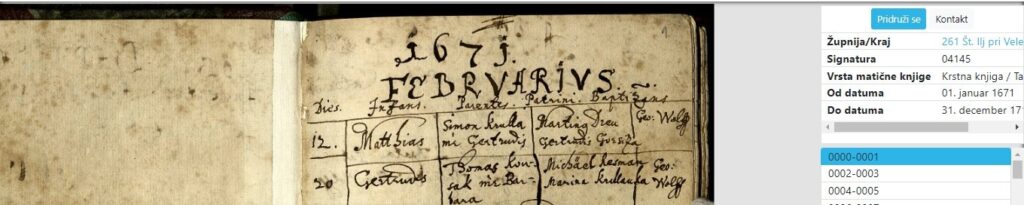 1
1671.
FEBRVARIVS.
Dies. Infans. Parentes. Patrini. Baptizans
12. Matthias Simon Krulla Marting Dreu Geo: Wolff
mr Gertrudis Gertrudis
20 Gertrudis Thomas Kou- Michäel Kesman Geo:
sak mr Bar- Marina Krullauka Wolff
bara
Pridruži se Kontakt
Župnija/Kraj 261 Št. Ilj pri Vele
Signatura 04145
Vrsta matične knjige Krstna knjiga / Ta
Od datuma 01. januar 1671
Do datuma 31. december 17
0000-0001
0002-0003
0004-0005